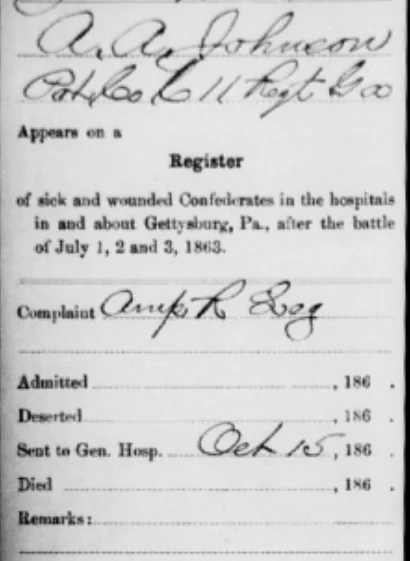 A. A. Johnson
Pvt, Co C 11 Regt Ga
Appears on a
Register
of sick and wounded Confederates in the hospitals
in and about Gettysburg, Pa., after the battle
of July 1, 2 and 3, 1863.
Complaint Amp. R Leg
Admitted , 186 .
Deserted , 186 .
Sent to Gen. Hosp. Oct 15, 186 .
Died , 186 .
Remarks: